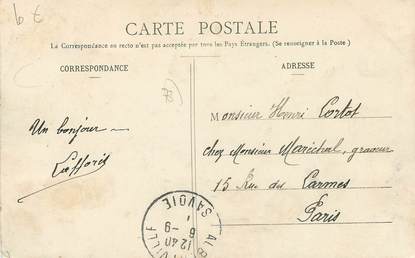 CARTE POSTALE
La Correspondance au recto n'est pas acceptée par tous les Pays Etrangers. (Se renseigner à la Poste)
CORRESPONDANCE
ADRESSE
Un bonjour
Monsieur Henri Cortot
chez Monsieur Maréchal, graveur
15 Rue des Carmes
Paris
SAVOIE
1240
6-9